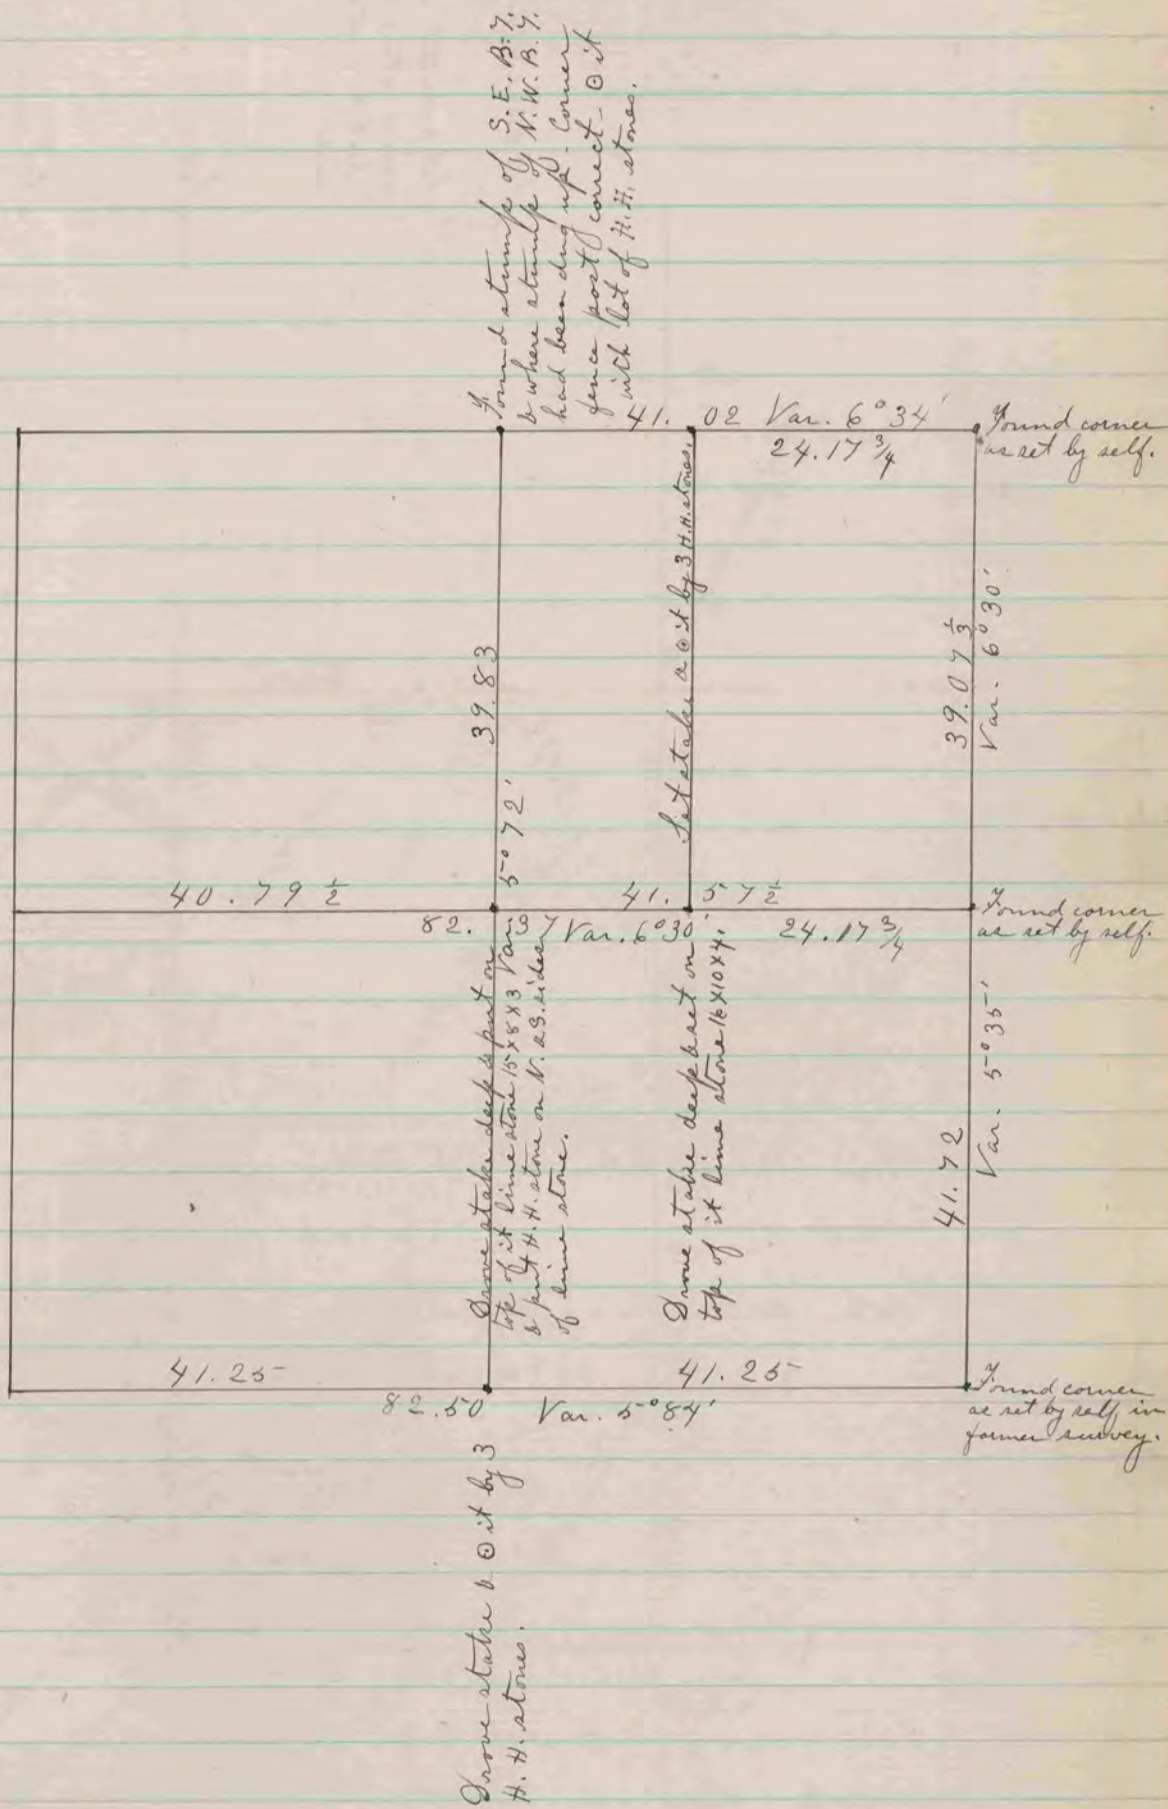 Found stump of S. E. B. T.
& where stump of N. W. B. T.
had been dug up. Corner
fence post correct - ⊙ it
with lot of H. H. stones.
41. 02 Var. 6° 34'
24.17 3/4
Found corner
as set by self.
39.83
5° 72'
Set stake & ⊙ it by 3 H.H. stones.
39.07 1/3
Var. 6° 30'
40.79 1/2
41. 57 1/2
82. 37 Var. 6° 30'
24.17 3/4
Found corner
as set by self.
Drove stake deep & put on
top of it lime stone 15 X 8 X 3 Var.
& put H. H. stone on N. & S. sides
of lime stone.
Drove stake deep & set on
top of it lime stone 16 X 10 X 4.
41.72
Var. 5° 35'
41.25
41.25
82.50 Var. 5° 84'
Found corner
as set by self in
former survey.
Drove stake & ⊙ it by 3
H. H. stones.